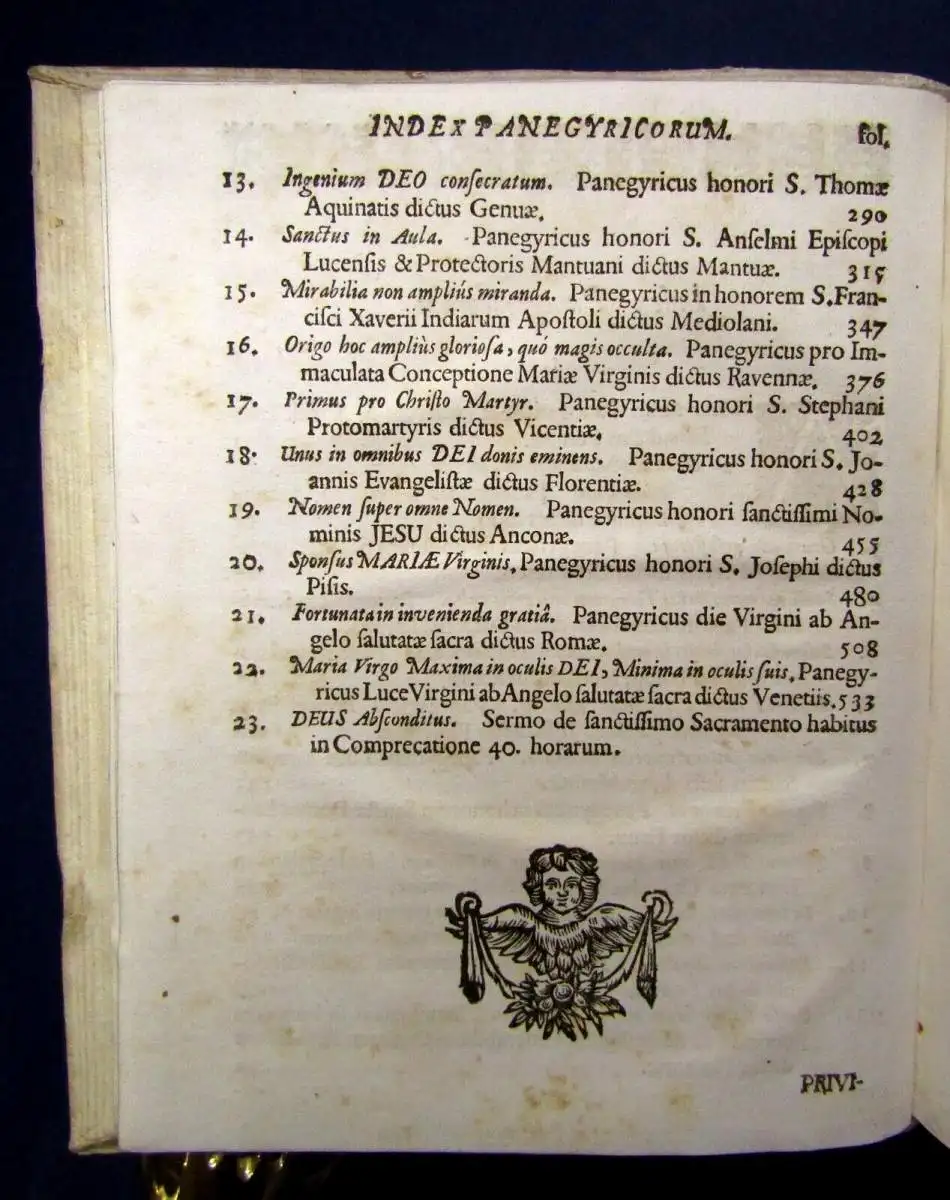 INDEX PANEGYRICORUM. fol.
13. Ingenium DEO conſecratum. Panegyricus honori S. Thomæ
Aquinatis dictus Genuæ. 290
14. Sanctus in Aula. Panegyricus honori S. Anſelmi Epiſcopi
Lucenſis & Protectoris Mantuani dictus Mantuæ. 315
15. Mirabilia non ampliús miranda. Panegyricus in honorem S. Fran-
ciſci Xaverii Indiarum Apoſtoli dictus Mediolani. 347
16. Origo hoc ampliùs glorioſa, quó magis occulta. Panegyricus pro Im-
maculata Conceptione Mariæ Virginis dictus Ravennæ. 376
17. Primus pro Chriſto Martyr. Panegyricus honori S. Stephani
Protomartyris dictus Vicentiæ. 402
18. Unus in omnibus DEI donis eminens. Panegyricus honori S. Jo-
annis Evangeliſtæ dictus Florentiæ. 428
19. Nomen ſuper omne Nomen. Panegyricus honori ſanctiſſimi No-
minis JESU dictus Anconæ. 455
20. Sponſus MARIÆ Virginis. Panegyricus honori S. Joſephi dictus
Piſis. 480
21. Fortunata in invenienda gratiâ. Panegyricus die Virgini ab An-
gelo ſalutatæ ſacra dictus Romæ. 508
22. Maria Virgo Maxima in oculis DEI, Minima in oculis ſuis. Panegy-
ricus Luce Virgini ab Angelo ſalutatæ ſacra dictus Venetiis. 533
23. DEUS Abſconditus. Sermo de ſanctiſſimo Sacramento habitus
in Comprecatione 40. horarum.
PRIVI-